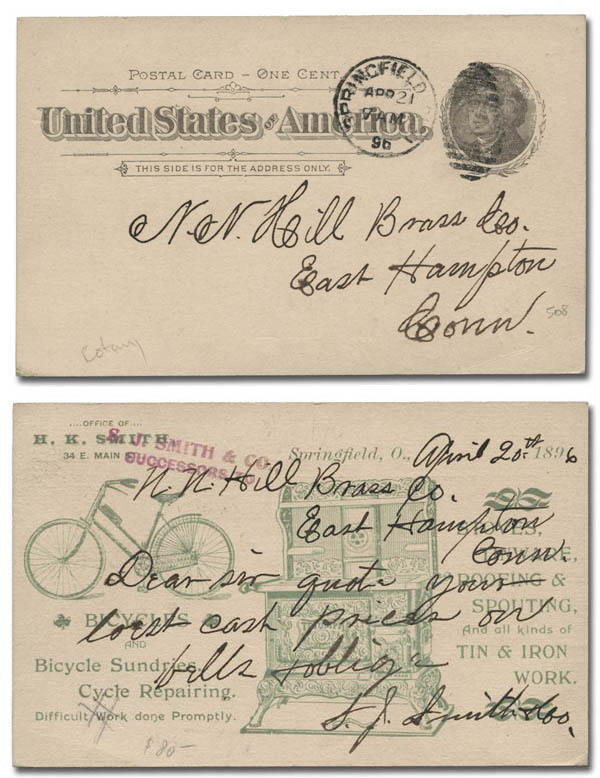 POSTAL CARD – ONE CENT.
United States of America.
THIS SIDE IS FOR THE ADDRESS ONLY.
SPRINGFIELD
APR 21
7 AM
96
N. N. Hill Brass Co.
East Hampton
Conn.
508
Rotary
....OFFICE OF....
H. K. SMITH
34 E. MAIN
S. J. SMITH & CO
SUCCESSORS TO
Springfield, O., April 20th 1896
N. N. Hill Brass Co.
East Hampton
Conn.
Dear sir quote your
lorst cast prices on
bells & oblige
S. J. Smith & Co.
BICYCLES
AND
Bicycle Sundries.
Cycle Repairing.
Difficult Work done Promptly.
ROOFING &
SPOUTING,
And all kinds of
TIN & IRON
WORK.
$80-